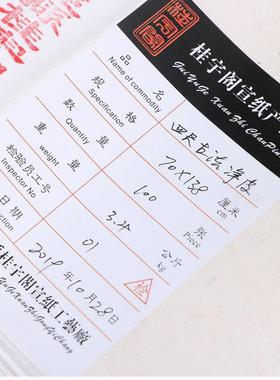 桂宇阁宣纸产
GuiYuGe Xuan Zhi ChanPin
品名 四尺 净皮
Name of commodity
规格 70×138 厘米
Specification cm
数量 100 张
Quantity Piece
重量 3.4 公斤
weight kg
检验员工号 01 检
Inspector No
日期 2019年10月28日
桂宇阁宣纸工藝廠
YuGe Xuan Zhi GongYi Chang